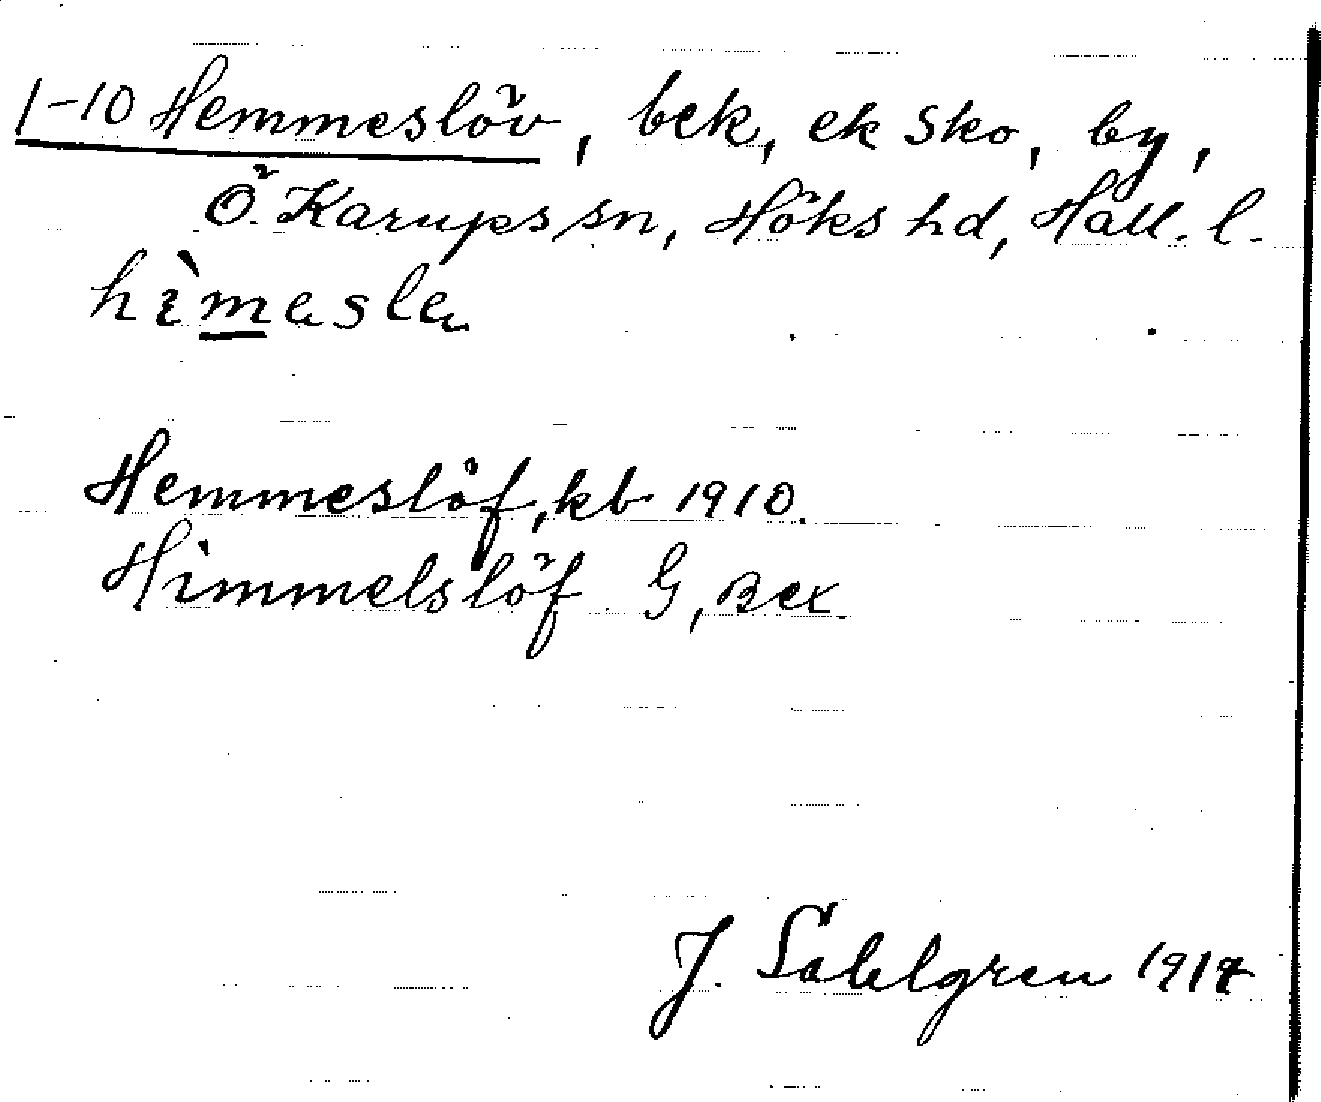 1-10 Hemmeslöv, bek, ek sko, by,
Ö. Karups sn, Höks hd, Hall. l.
Hemmeslöf, kb 1910.
Himmelslöf G, Bex
J. Sahlgren 1917